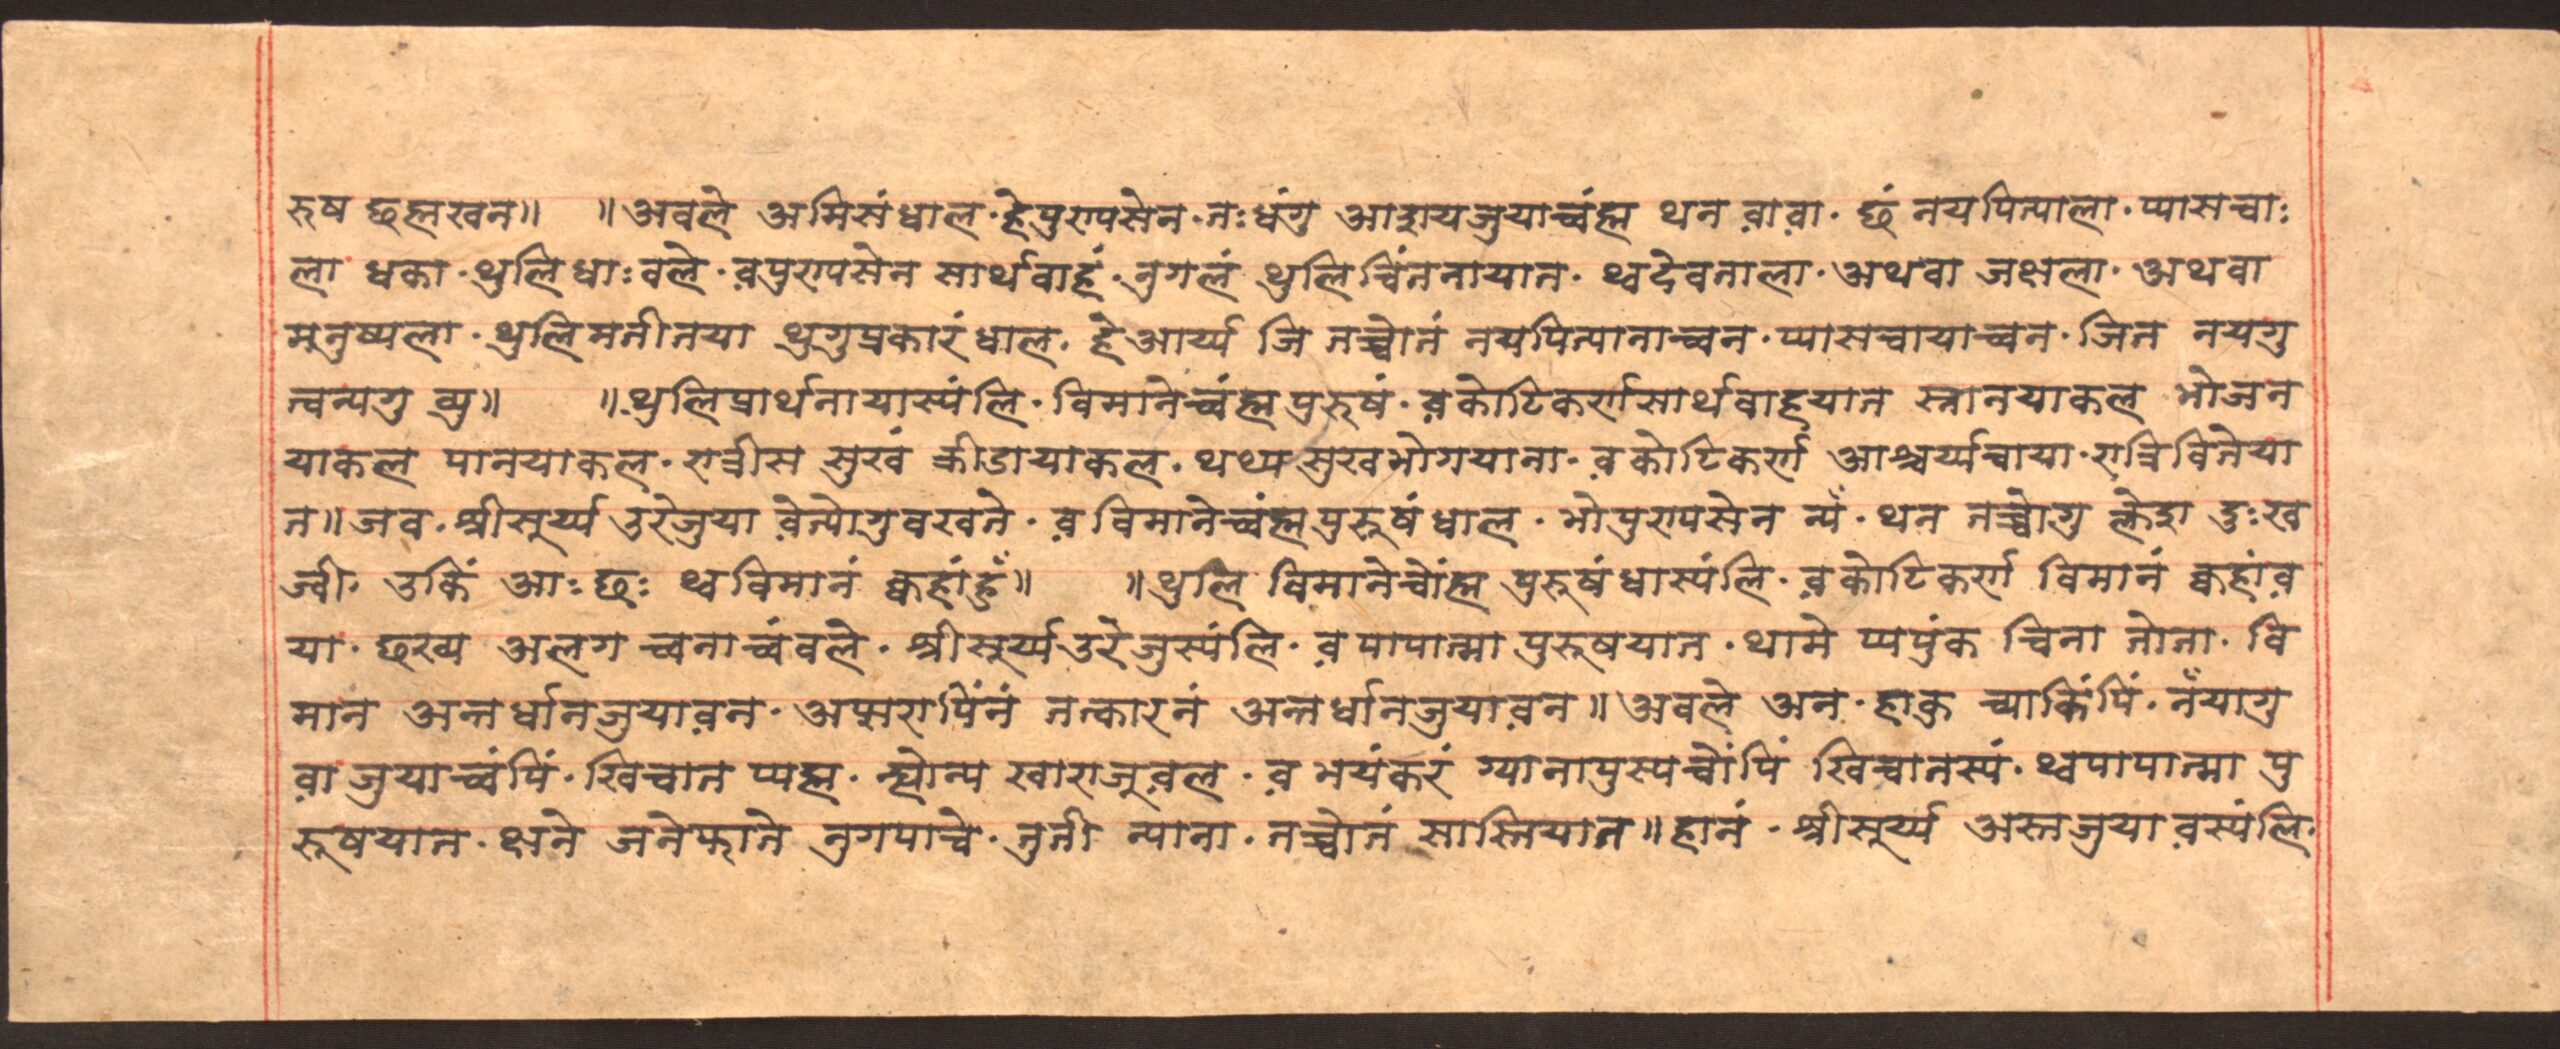 रुष छह्मखन॥ ॥अवले अमिसंधाल·हेपुरापसेन·तःधंगु आज्ञायजुयाच्वंह्म थन व़ाव़ा· छं नयपित्याला·प्यासचाः
ला धका·थुलिधाःवले·व़पुरापसेन सार्थवाहं·नुगलं थुलिचिंतनायात·थ्वदेवताला·अथवा जक्षला·अथवा
मनुष्यला·थुलिमतीतया थुगुप्रकारंधाल·हेआर्य्य जि तच्वोतं नयपित्यानाच्वन·प्यासचायाच्वन·जित नयगु
त्वन्यगु ब्यु॥ ॥थुलिप्रार्थनायास्यंलि·विमानेच्वंह्मपुरुषं·व़कोटिकर्णसार्थवाहयात स्नानयाकल भोजन
याकल पानयाकल·रात्रीस सुखं क्रीडायाकल·थथ्य सुखभोगयाना·व़कोटिकर्ण आश्चर्य्यचाया·रात्रिवितेया
त॥जव·श्रीसूर्य्य उदेजुया व़ेत्योगुवखते·व़ विमानेच्वंह्मपुरुषंधाल·भोपुरापसेन न्यँ·थन तच्वोगु क्लेश दुःख
ज्वी· उकिं आः छः थ्वविमानं क्वहांहुँ॥ ॥थुलि विमानेच्वोंह्म पुरुषंधास्यंलि·व़कोटिकर्ण विमानं क्वहांव़
या·छख्य अलग च्वनाच्वंवले·श्रीसूर्य्यउदेजुस्यंलि·व़ पापात्मा पुरुषयात·थामे प्यपुंक चिना तोता·वि
मान अन्तर्धानजुयाव़न·अप्सरापिंनं तत्कारनं अन्तर्धानजुयाव़न॥अवले अन·हाकु च्याकिंपिं·नँयागु
व़ा जुयाच्वंपिं·खिचात प्यह्म·न्ह्योन्य खाराजूव़ल·व़ भयंकरं ग्यानापुस्यच्वोंपिं खिचातस्यं·थ्वपापात्मा पु
रुषयात·क्षने जनेफाते नुगपाच्वे·नुती न्याना·तच्वोतं सास्तियात॥हानं·श्रीसूर्य्य अस्तजुया व़स्यंलि·